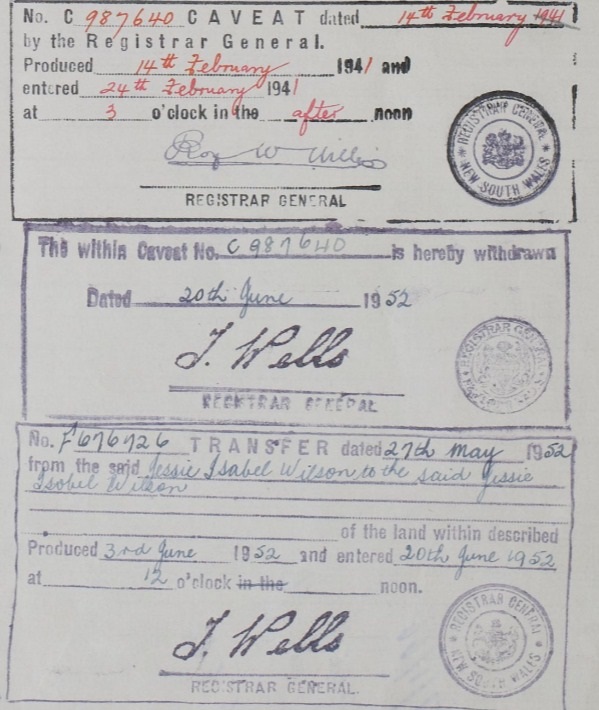 No. C 987640 CAVEAT dated 14th February 1941
by the Registrar General.
Produced 14th February 1941 and
entered 24th February 1941
at 3 o'clock in the after noon
REGISTRAR GENERAL
NEW SOUTH WALES
Roy W Willis
REGISTRAR GENERAL
The within Caveat No. C 987640 is hereby withdrawn
Dated 20th June 1952
REGISTRAR GENERAL
J. Wells
REGISTRAR GENERAL
No. F676726 TRANSFER dated 27th May 1952
from the said Jessie Isabel Wilson to the said Jessie
Isobel Wilson
of the land within described
Produced 3rd June 1952 and entered 20th June 1952
at 12 o'clock in the noon.
REGISTRAR GENERAL
NEW SOUTH WALES
J. Wells
REGISTRAR GENERAL.